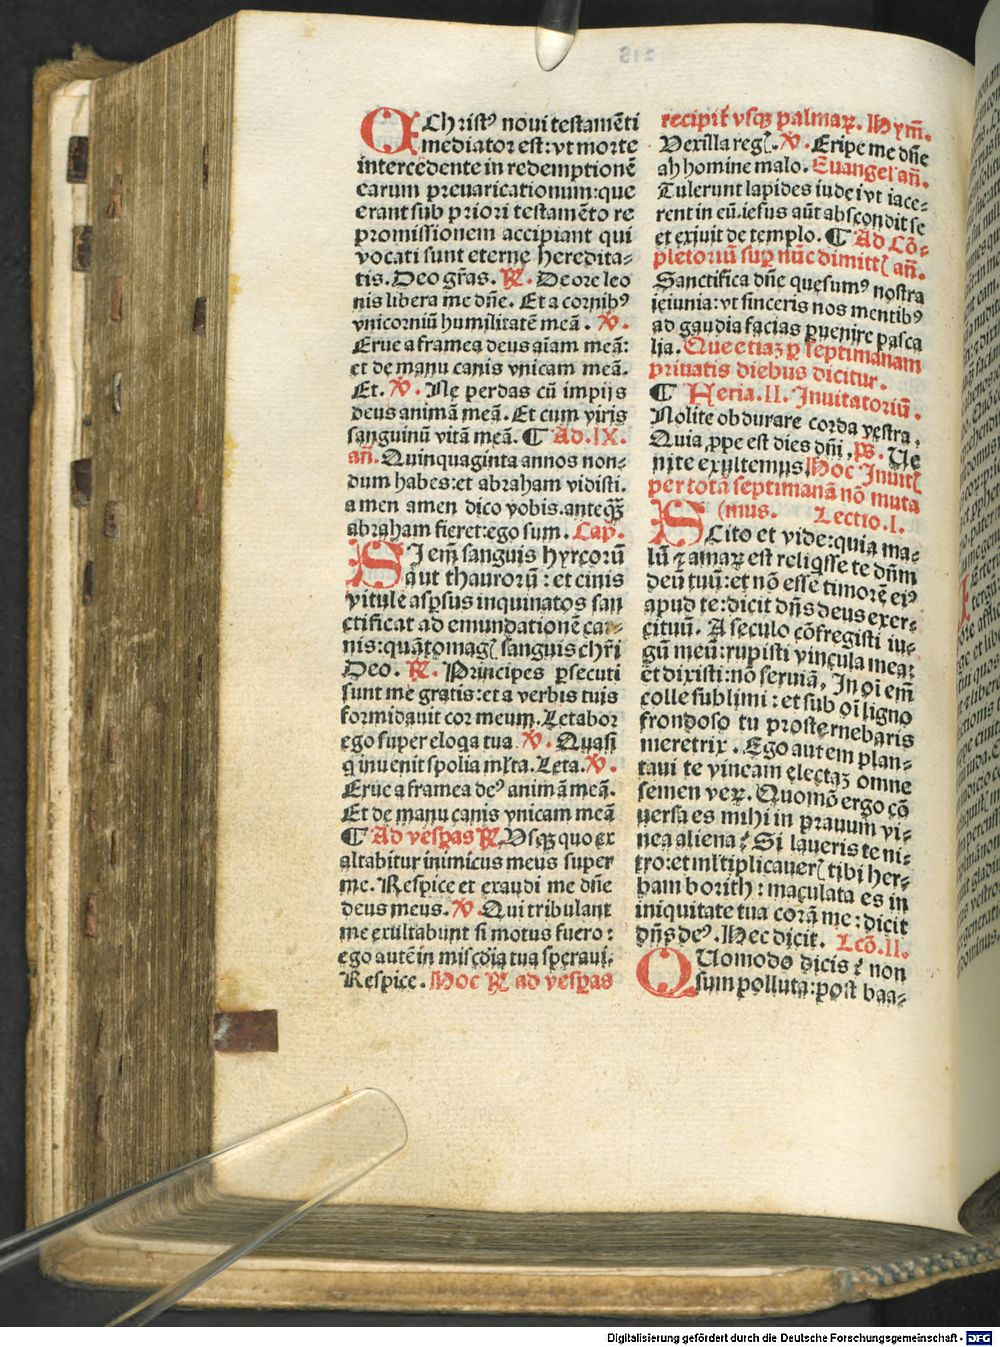 Christꝰ noui testamēti
mediator est: vt morte
intercedente in redemptionē
earum preuaricationum: que
erant sub priori testamēto re
promissionem accipiant qui
vocati sunt eterne heredita⸗
tis. Deo gr̄as. ℟. De ore leo
nis libera me dn̄e. Et a cornibꝰ
vnicorniū humilitatē meā. ℣.
Erue a framea deus aīam meā:
et de manu canis vnicam meā.
Et. ℣. Ne perdas cū impijs
deus animā meā. Et cum viris
sanguinū vitā meā. ¶ Ad. IX.
an̄. Quinquaginta annos non⸗
dum habes: et abraham vidisti.
amen amen dico vobis. anteqꝫ
abraham fieret: ego sum. Cap̄.
SI em̄ sanguis hyrcorū
aut thaurorū: et cinis
vitule asꝑsus inquinatos san
ctificat ad emundationē car⸗
nis: quātomagꝭ sanguis chr̄i
Deo. ℟. Principes ꝑsecuti
sunt me gratis: et a verbis tuis
formidauit cor meum. Letabor
ego super eloqa tua. ℣. Quasi
q inuenit spolia ml̄ta. Leta. ℣.
Erue a framea deꝰ animā meā.
Et de manu canis vnicam meā
¶ Ad vesꝑas ℟. Vsqꝫ quo ex
altabitur inimicus meus super
me. Respice et exaudi me dn̄e
deus meus. ℣. Qui tribulant
me exultabunt si motus fuero:
ego autē in mis̄cdia tua speraui.
Respice. Hoc ℟ ad vesꝑas
recipit̄ vsqꝫ palmaꝝ. Hym̄.
Vexilla regꝭ. ℣. Eripe me dn̄e
ab homine malo. Euangel' an̄.
Tulerunt lapides iudei vt iace⸗
rent in eū. iesus aūt abscondit se
et exiuit de templo. ¶ Ad Cō⸗
pletoriū suꝑ nūc dimittꝭ an̄.
Sanctifica dn̄e quesumꝰ nostra
ieiunia: vt sinceris nos mentibꝰ
ad gaudia facias ꝑuenire pasca
lia. Que etiaꝫ ꝑ septimanam
priuatis diebus dicitur.
¶ Feria. II. Inuitatoriū.
Nolite obdurare corda vestra.
Quia ꝓpe est dies dn̄i. ps̄. Ve
nite exultemus. Hoc Inuitꝭ
per totā septimanā nō muta
(mus. Lectio. I.
SCito et vide: quia ma⸗
lū ⁊ amaꝝ est reliqsse te dn̄m
deū tuū: et nō esse timorē eiꝰ
apud te: dicit dn̄s deus exer⸗
cituū. A seculo cōfregisti iu⸗
gū meū: rupisti vincula mea:
et dixisti: nō seruiā. In oi em̄
colle sublimi: et sub oī ligno
frondoso tu prosternebaris
meretrix. Ego autem plan⸗
taui te vineam electaꝫ omne
semen veꝝ. Quomō ergo cō
uersa es mihi in prauum vi⸗
nea aliena? Si laueris te ni⸗
tro: et ml̄tiplicauerꝭ tibi her⸗
bam borith: maculata es in
iniquitate tua corā me: dicit
dn̄s deꝰ. Hec dicit. Lcō. II.
QUomodo dicis? non
sum polluta: post baa⸗
Digitalisierung gefördert durch die Deutsche Forschungsgemeinschaft - DFG